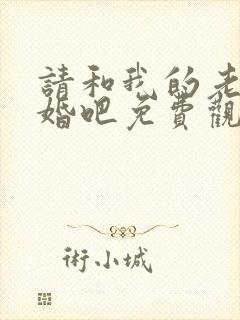 請和我的老
婚吧免費觀
術小城